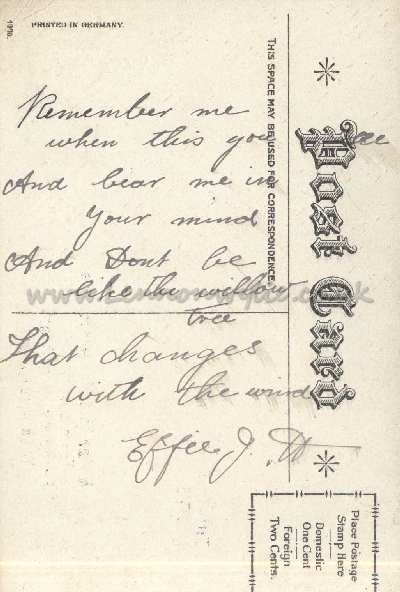 1910.
PRINTED IN GERMANY.
Remember me
when this you see
And bear me in
your mind
And Dont be
like the willow
tree
That changes
with the wind
Effie J. H
THIS SPACE MAY BE USED FOR CORRESPONDENCE.
Post Card
Place Postage
Stamp Here
Domestic
One Cent
Foreign
Two Cents.